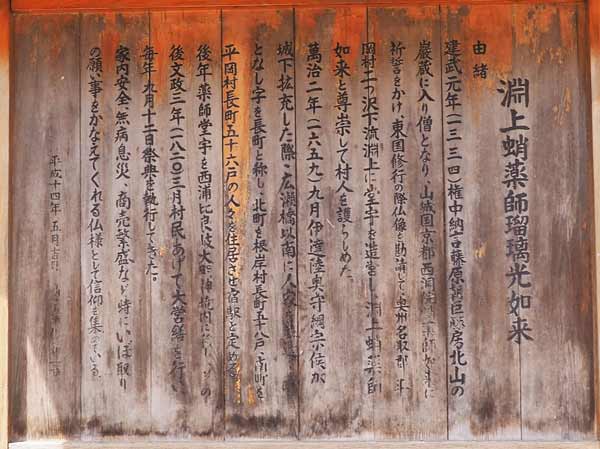 淵上蛸薬師瑠璃光如来
由緒
建武元年（一三三四）権中納言藤原藤房北山の
巌蔵に入り僧となり、山城国京都西洞院
祈誓をかけ、東国修行の際仏像を勧請して、奥州名取郡
岡村二つ沢下流淵上に堂宇を造営し、淵上蛸薬師
如来と尊崇して村人を護らしめた。
萬治二年（一六五九）九月伊達陸奥守綱宗候が
城下拡充した際、広瀬橋以南に人家を
となし字を長町と称し、北町を根岸村長町五十八戸、南町を
平岡村長町五十六戸の人々を住居させ宿駅と定める
後年薬師堂宇を西浦
後文政三年（一八二〇）三月村民あげて大営繕を行
毎年九月十二日祭典を執行してきた。
家内安全、無病息災、商売繁盛など特にいぼ取り
の願い事をかなえてくれる仏様として信仰を集めている。
平成十四年 五月吉日